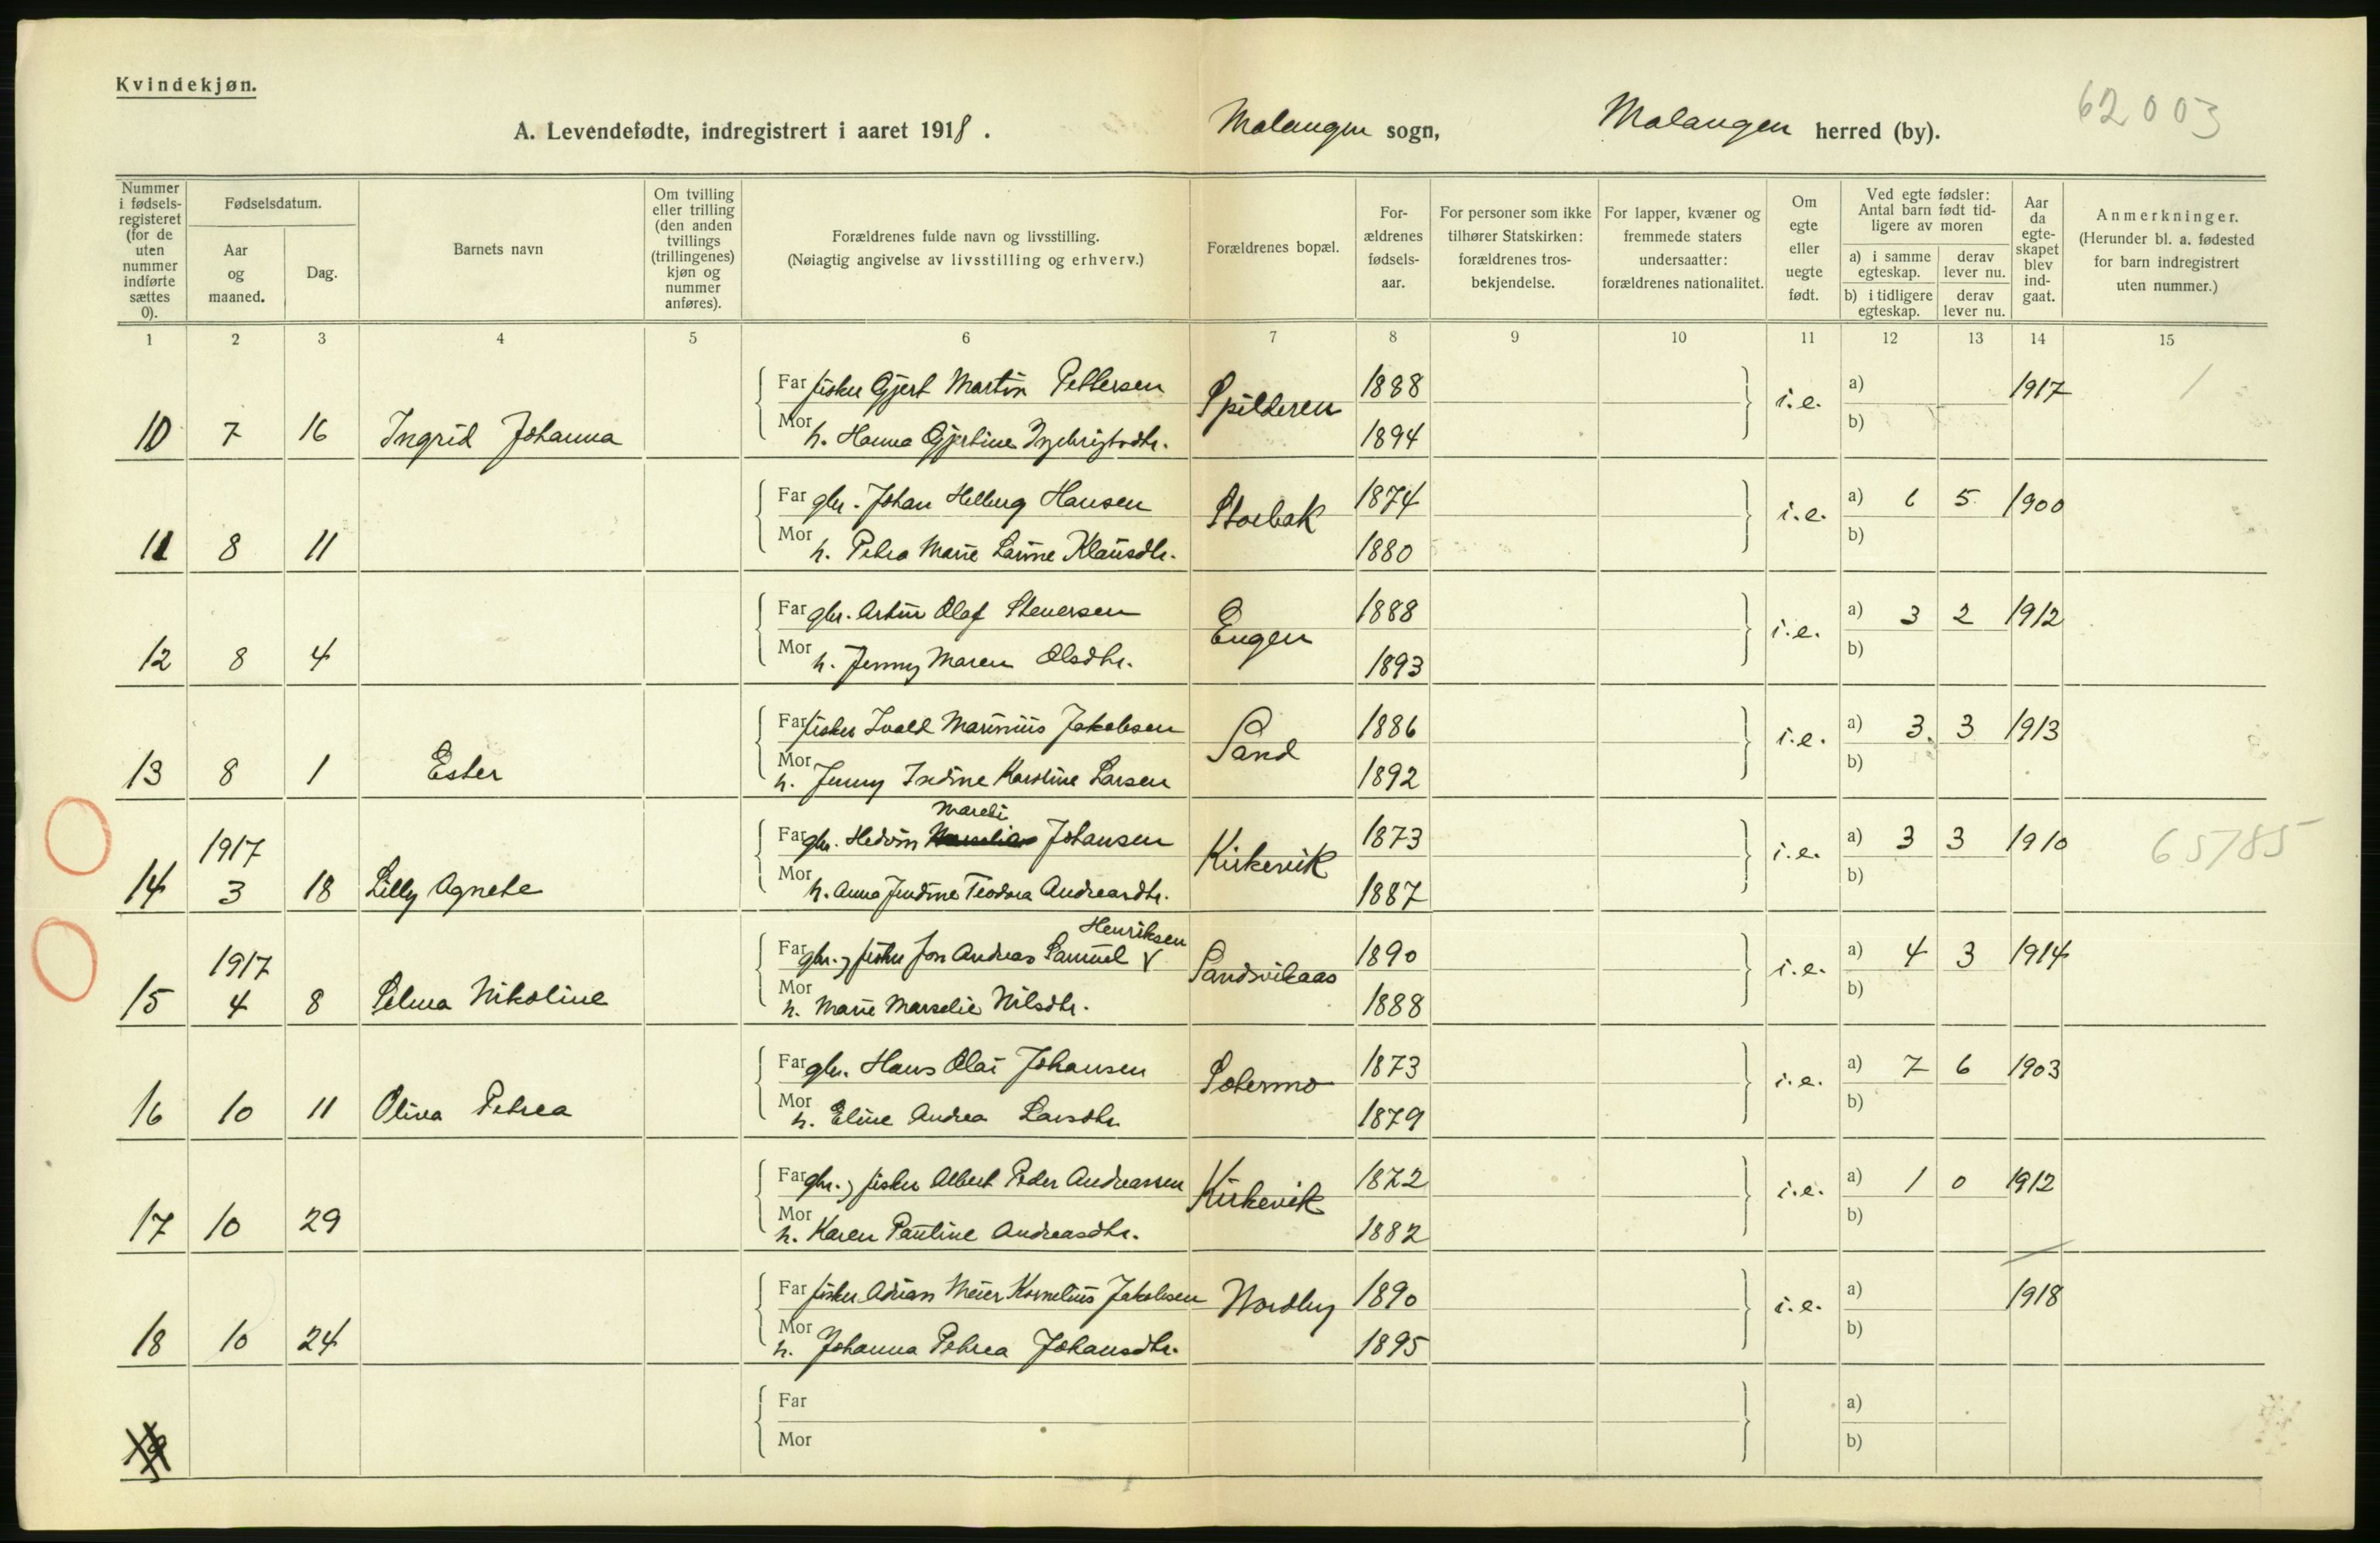 Kvindekjøn.
A. Levendefødte, indregistrert i aaret 1918. Malangen sogn, Malangen herred (by). 62003
Nummer i fødselsregisteret (for de uten nummer indførte sættes 0).
Fødselsdatum.
Aar og maaned.
Dag.
Barnets navn
Om tvilling eller trilling (den anden tvillings (trillingenes) kjøn og nummer anføres).
Forældrenes fulde navn og livsstilling.
(Nøiagtig angivelse av livsstilling og erhverv.)
Forældrenes bopæl.
Forældrenes fødselsaar.
For personer som ikke tilhører Statskirken: forældrenes trosbekjendelse.
For lapper, kvæner og fremmede staters undersaatter: forældrenes nationalitet.
Om egte eller uegte født.
Ved egte fødsler: Antal barn født tidligere av moren
a) i samme egteskap.
derav lever nu.
b) i tidligere egteskap.
derav lever nu.
Aar da egteskapet blev indgaat.
Anmerkninger.
(Herunder bl. a. fødested for barn indregistrert uten nummer.)
1 2 3 4 5 6 7 8 9 10 11 12 13 14 15
Far fisker Gjert Martin Pettersen Spilderen 1888 i.e. a) 1917
10 7 16 Ingrid Johanna Mor h. Hanna Gjertine 1894 b)
Far gbr. Johan Helberg Hansen Storbak 1874 i.e. a) 6 5 1900
11 8 11 Mor h. Petra Marie Larine Klausdtr. 1880 b)
Far gbr. Artur Olaf Stenersen Engen 1888 i.e. a) 3 2 1912
12 8 4 Mor h. Jenny Maren Olsdtr. 1893 b)
Far fisker Ivald Marinius Jakobsen Sand 1886 i.e. a) 3 3 1913
13 8 1 Ester Mor h. Jenny Indine Karoline Larsen 1892 b)
Mareli
Far gbr. Hedvin Johansen Kirkevik 1873 i.e. a) 3 3 1910 65785
14 1917 3 18 Lilly Agnete Mor h. Anna Jendine Teodora Andreasdtr. 1887 b)
Henriksen
Far gbr. & fisker Jon Andreas Samuel V Sandvikaas 1890 i.e. a) 4 3 1914
15 1917 4 8 Selma Nikoline Mor h. Marie Marselie Nilsdtr. 1888 b)
Far gbr. Hans Olai Johansen Solermo 1873 i.e. a) 7 6 1903
16 10 11 Oliva Petrea Mor h. Eline Andrea Larsdtr. 1879 b)
Far gbr. & fisker Albert Peder Andreassen Kirkevik 1872 i.e. a) 1 0 1912
17 10 29 Mor h. Karen Pauline Andreasdtr. 1882 b)
Far fisker Adrian Meier Kornelius Jakobsen Nordby 1890 i.e. a) 1918
18 10 24 Mor h. Johanna Petrea Johansdtr. 1895 b)
Far a)
Mor b)